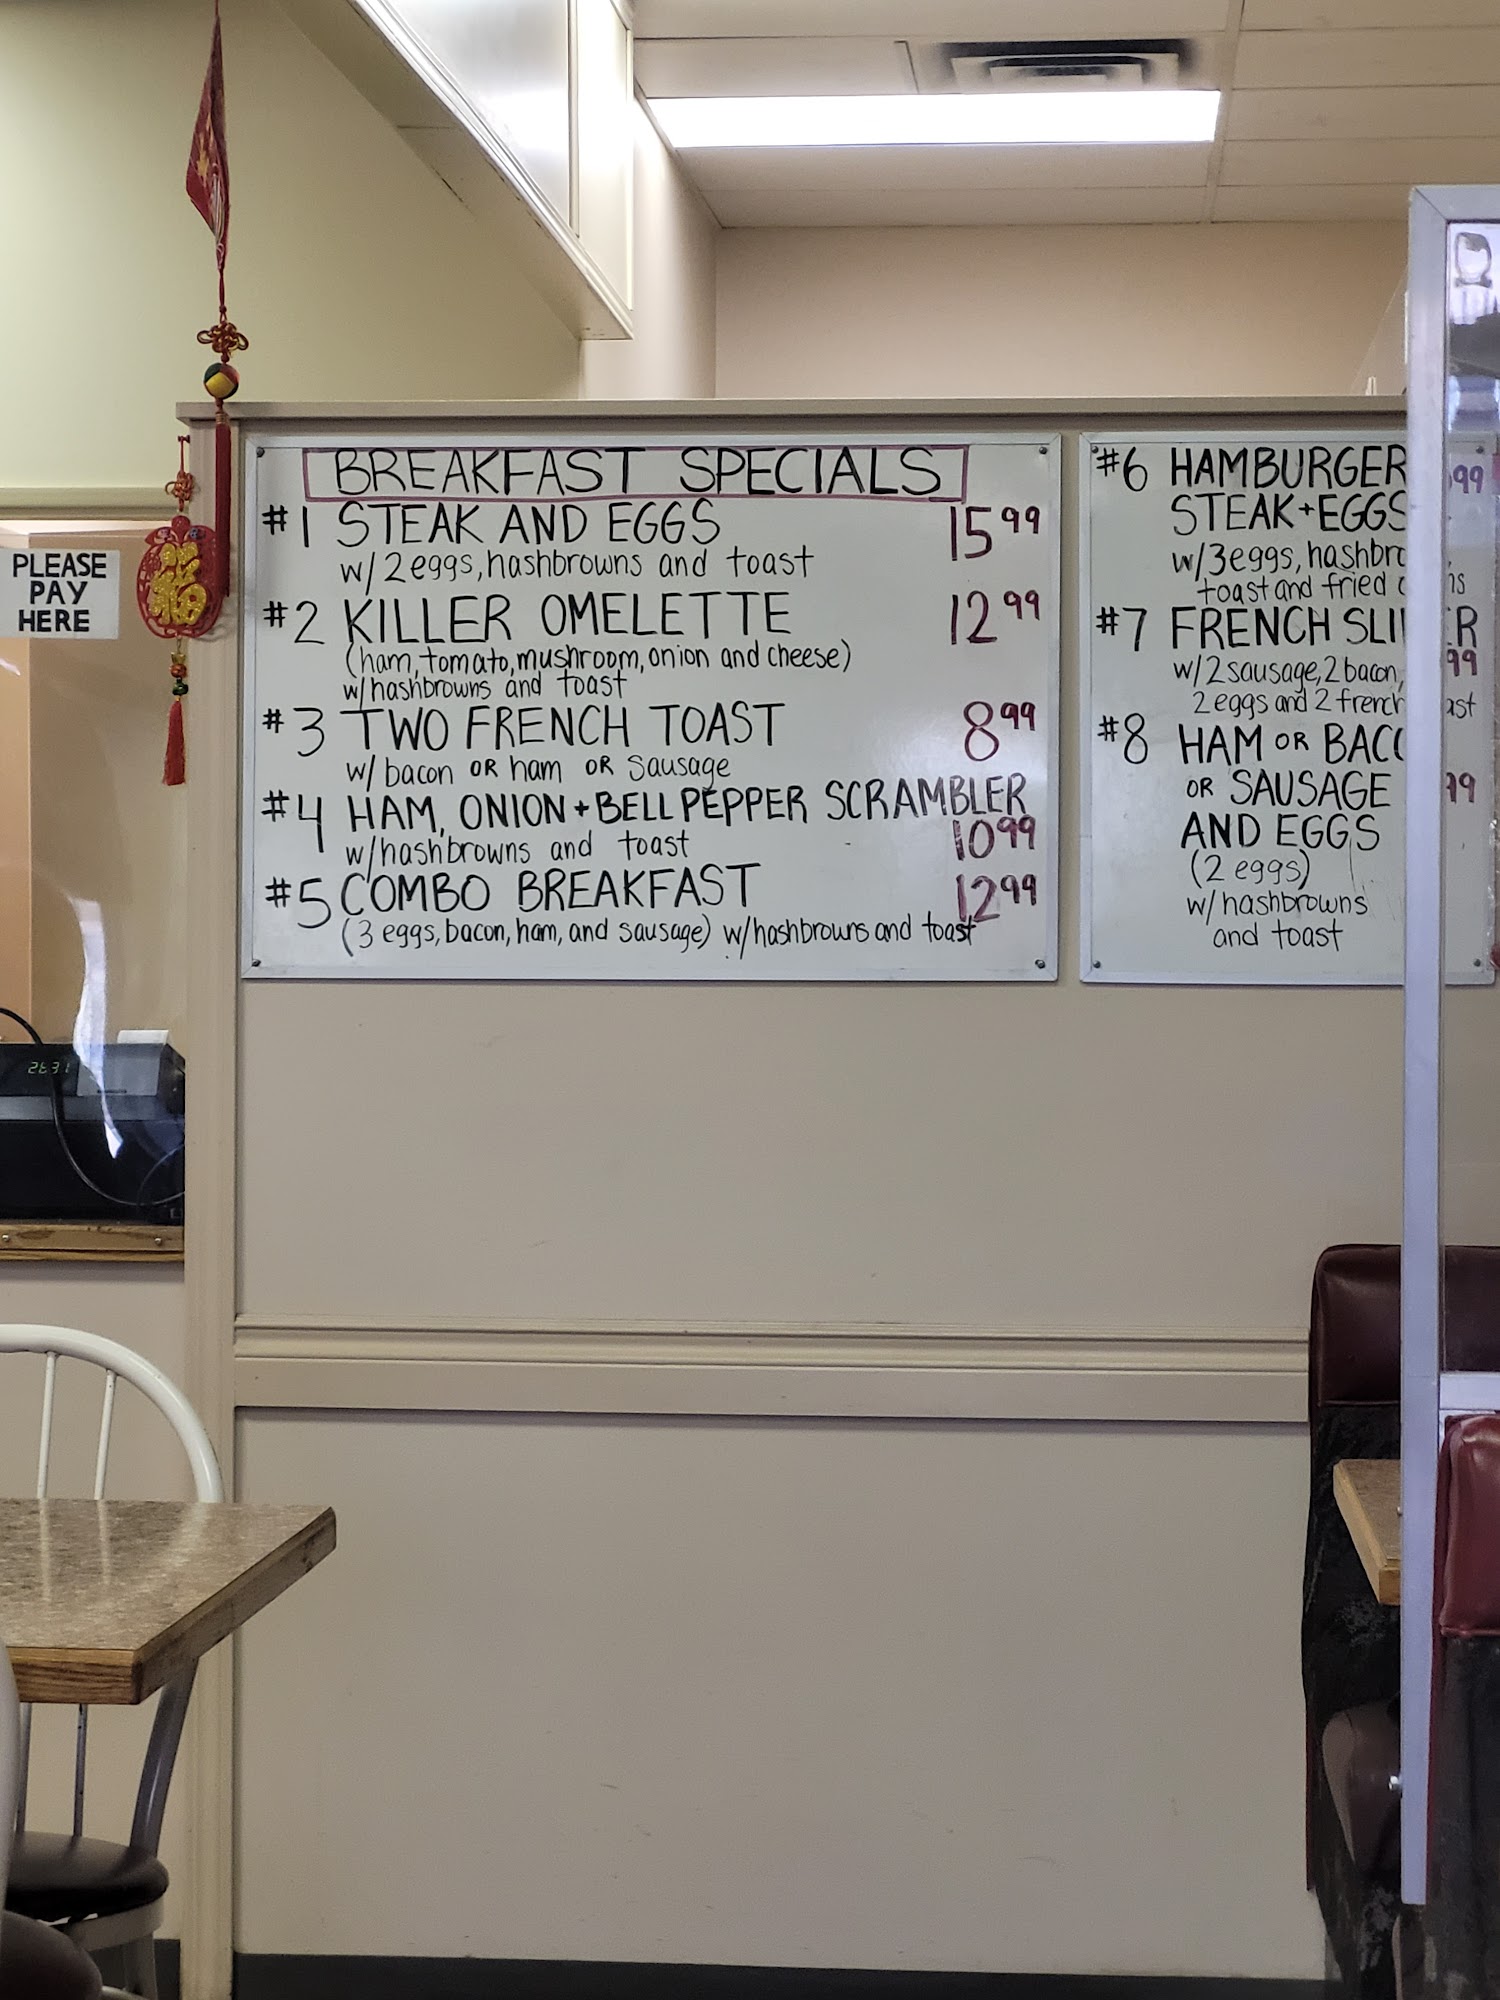 PLEASE
PAY
HERE
福
BREAKFAST SPECIALS
#1 STEAK AND EGGS 15.99
w/ 2 eggs, hashbrowns and toast
#2 KILLER OMELETTE 12 99
(ham, tomato, mushroom, onion and cheese)
w/ hashbrowns and toast
#3 TWO FRENCH TOAST 8 99
w/ bacon OR ham OR sausage
#4 HAM, ONION + BELL PEPPER SCRAMBLER
w/ hashbrowns and toast 10 99
#5 COMBO BREAKFAST 12 99
(3 eggs, bacon, ham, and sausage) w/ hashbrowns and toast
#6 HAMBURGER 99
STEAK + EGGS
w/ 3 eggs,
toast and fried
#7 FRENCH
99
w/ 2 sausage, 2 bacon,
2 eggs and 2 french
#8 HAM OR
OR SAUSAGE 99
AND EGGS
(2 eggs)
w/ hashbrowns
and toast